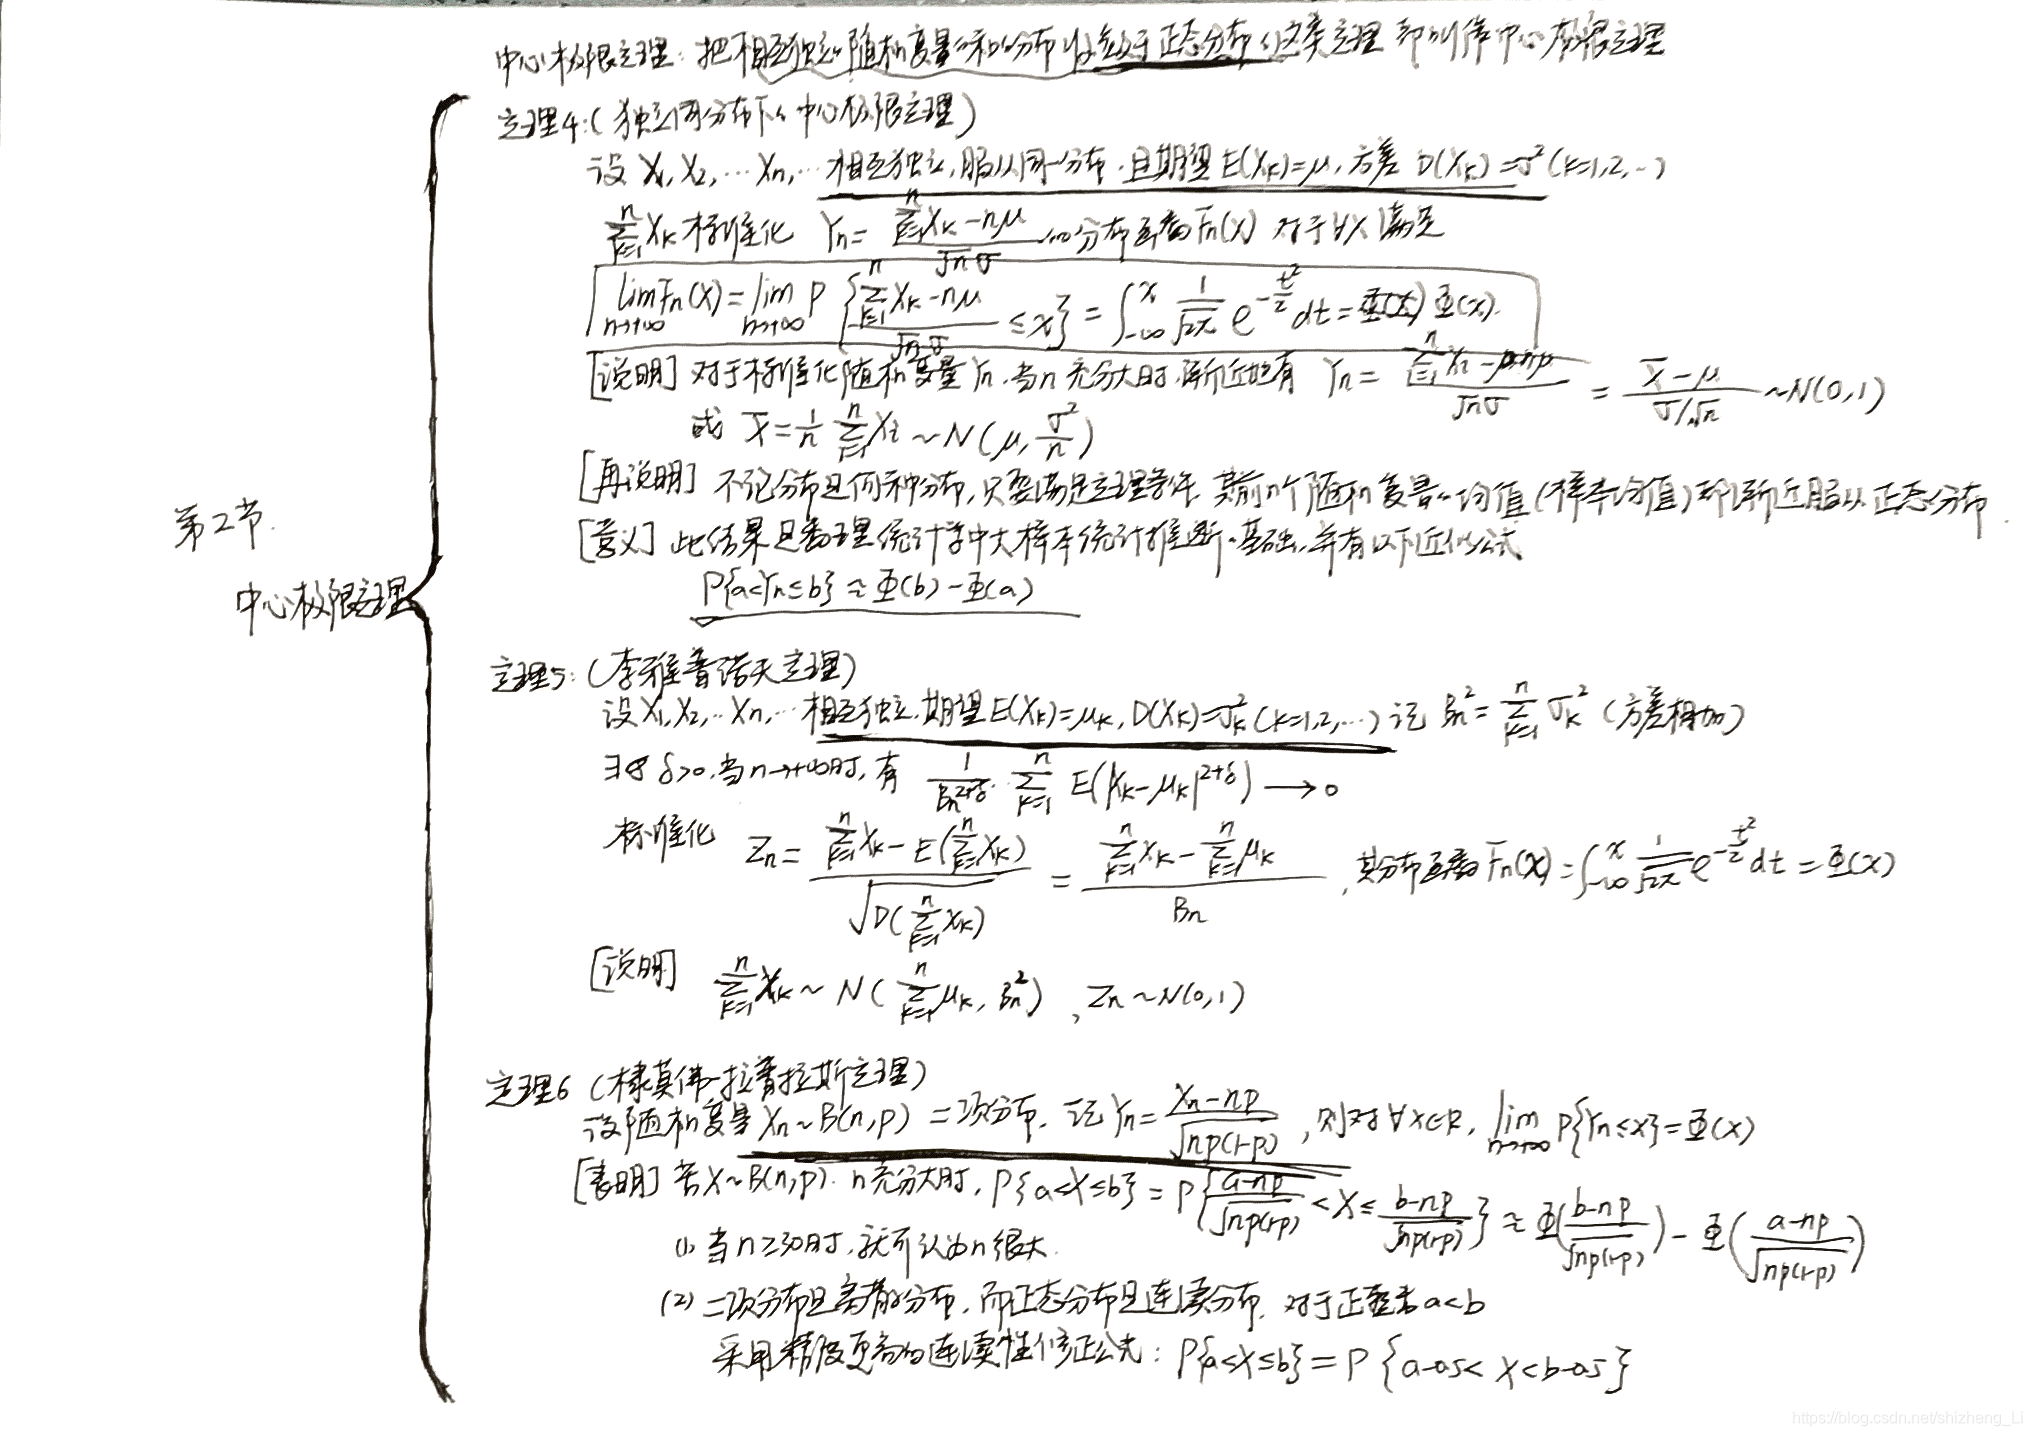 中心极限定理：把相互独立的随机变量的和的分布收敛于正态分布的这类定理都叫作中心极限定理
定理4：(独立同分布下的中心极限定理)
设 X₁, X₂, … Xₙ, … 相互独立, 服从同一分布, 且期望 E(Xₖ)=μ, 方差 D(Xₖ)=σ² (k=1,2,…)
∑ₖ₌₁ⁿ Xₖ 标准化 Yₙ = (∑ₖ₌₁ⁿ Xₖ - nμ)/(√n σ) 的分布函数 Fₙ(x) 对于∀x满足
lim_{n→+∞} Fₙ(x) = lim_{n→+∞} P{(∑ₖ₌₁ⁿ Xₖ - nμ)/(√n σ) ≤ x} = ∫_{-∞}^{x} 1/√(2π) e^{-t²/2} dt = Φ(x).
[说明] 对于标准化随机变量 Yₙ, 当n充分大时, 渐近地有 Yₙ = (∑ᵢ₌₁ⁿ Xᵢ - nμ)/(√n σ) = (X̄ - μ)/(σ/√n) ~ N(0,1)
或 X̄ = 1/n ∑ᵢ₌₁ⁿ Xᵢ ~ N(μ, σ²/n)
[再说明] 不论分布是何种分布, 只要满足定理条件, 其前n个随机变量的均值(样本均值)都渐近服从正态分布.
第2节.
[意义] 此结果是数理统计学中大样本统计推断的基础, 并有以下近似公式
中心极限定理
P{a<Yₙ≤b} ≈ Φ(b) - Φ(a)
定理5：(李雅普诺夫定理)
设 X₁, X₂, … Xₙ, … 相互独立, 期望 E(Xₖ)=μₖ, D(Xₖ)=σₖ² (k=1,2,…) 记 Bₙ² = ∑ₖ₌₁ⁿ σₖ² (方差相加)
∃ δ>0, 当n→+∞时, 有 1/Bₙ^{2+δ} · ∑ₖ₌₁ⁿ E(|Xₖ-μₖ|^{2+δ}) → 0
标准化 Zₙ = (∑ₖ₌₁ⁿ Xₖ - E(∑ₖ₌₁ⁿ Xₖ))/√(D(∑ₖ₌₁ⁿ Xₖ)) = (∑ₖ₌₁ⁿ Xₖ - ∑ₖ₌₁ⁿ μₖ)/Bₙ, 其分布函数 Fₙ(x) = ∫_{-∞}^{x} 1/√(2π) e^{-t²/2} dt = Φ(x)
[说明] ∑ₖ₌₁ⁿ Xₖ ~ N(∑ₖ₌₁ⁿ μₖ, Bₙ²), Zₙ ~ N(0,1)
定理6 (棣莫佛-拉普拉斯定理)
设随机变量 Xₙ ~ B(n,p) 二项分布, 记 Yₙ = (Xₙ-np)/√(np(1-p)), 则对∀x∈R, lim_{n→+∞} P{Yₙ≤x} = Φ(x)
[表明] 若X~B(n,p). n充分大时, P{a<X≤b} = P{(a-np)/√(np(1-p)) < X ≤ (b-np)/√(np(1-p))} ≈ Φ((b-np)/√(np(1-p))) - Φ((a-np)/√(np(1-p)))
(1) 当n≥30时, 就可认为n很大.
(2) 二项分布是离散的分布, 而正态分布是连续分布, 对于正整数a<b
采用精度更高的连续性修正公式：P{a<X≤b} = P{a-0.5< X < b-0.5}
https://blog.csdn.net/shizheng_Li